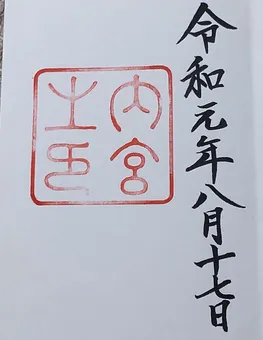 令和元年八月十七日
内宮
之印